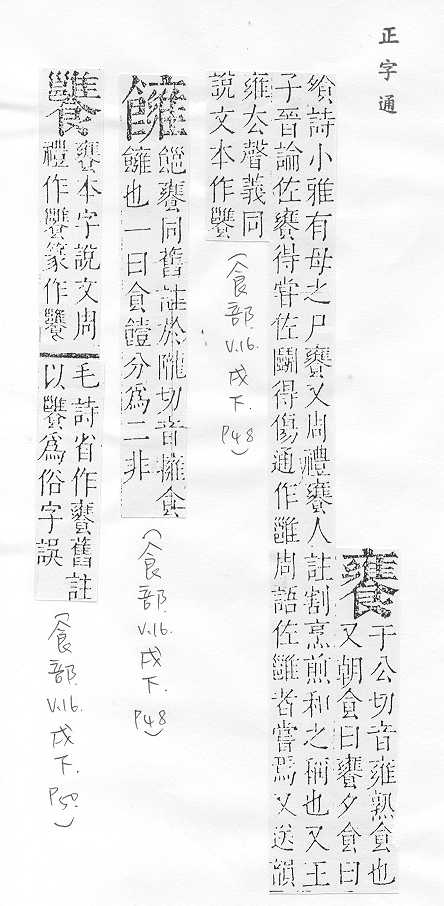 正字通
饔
于公切音雍熟食也
又朝食曰饔夕食曰
飧詩小雅有母之尸饔又周禮饔人註割烹煎和之稱也又王
子晉論佐饔得嘗佐鬭得傷通作雝周語佐雝者嘗焉又送韻
雍去聲義同
說文本作
(食部.V.16.戌下.P48)
饔同舊註於隴切音擁食
也一曰食饐分爲二非
(食部.V.16.戌下.P48)
饔本字說文周
禮作 篆作
毛詩省作饔舊註
以 爲俗字誤
(食部.V.16.戌下.P50.)